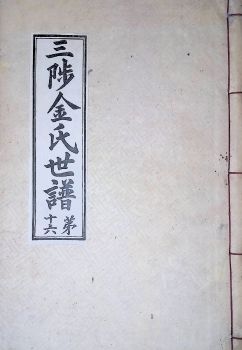 三陟金氏世譜
第十六